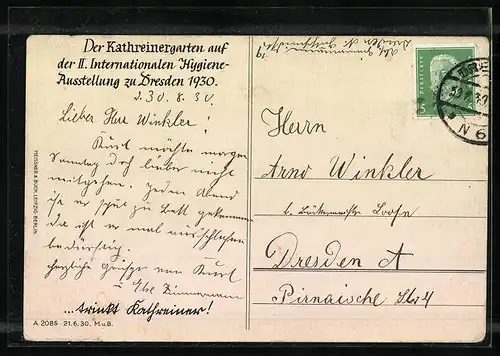 Der Kathreinergarten auf
der II. Internationalen Hygiene-
Ausstellung zu Dresden 1930.
d. 30. 8. 30.
Lieber Herr Winkler!
Kurt möchte morgen
Sonntag doch lieber nicht
mitgehen. Jeden Abend
ist er spät zu Bett gekommen
da ist er mal ausschlafen
bedürftig.
Herzliche Grüße von Kurt
u. Zimmermann
...trinkt Kathreiner!
A 2085 21.6.30. M.u.B.
MEISSNER & BUCH, LEIPZIG-BERLIN
Dresden N
5
N 6
Herrn
Arno Winkler
b. Bäckermeister
Dresden A
Pirnaische Str 4